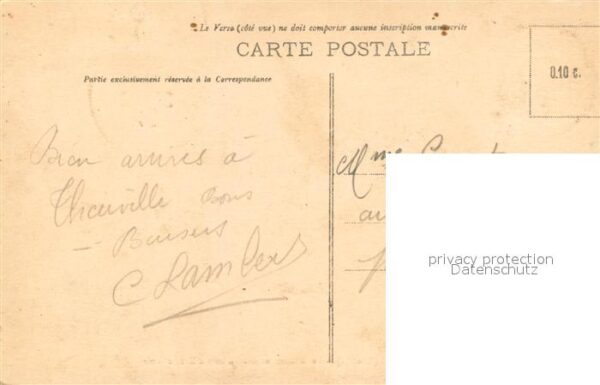 Le Verso (côté vue) ne doit comporter aucune inscription manuscrite
CARTE POSTALE
Partie exclusivement réservée à la Correspondance
0.10 c.
Bien arrivés à
Bons
Baisers
C Lambert
Mme
privacy protection
Datenschutz